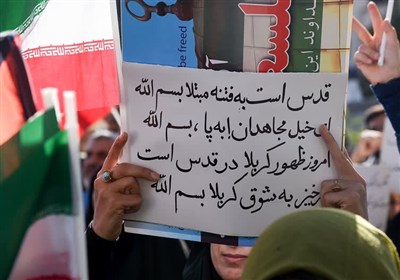 داوند این
be free
قدس است به فتنه مبتلا بسم الله
ای خیل مجاهدان! به پا، بسم الله
امروز ظهور کربلا در قدس است
برخیز به شوق کربلا بسم الله